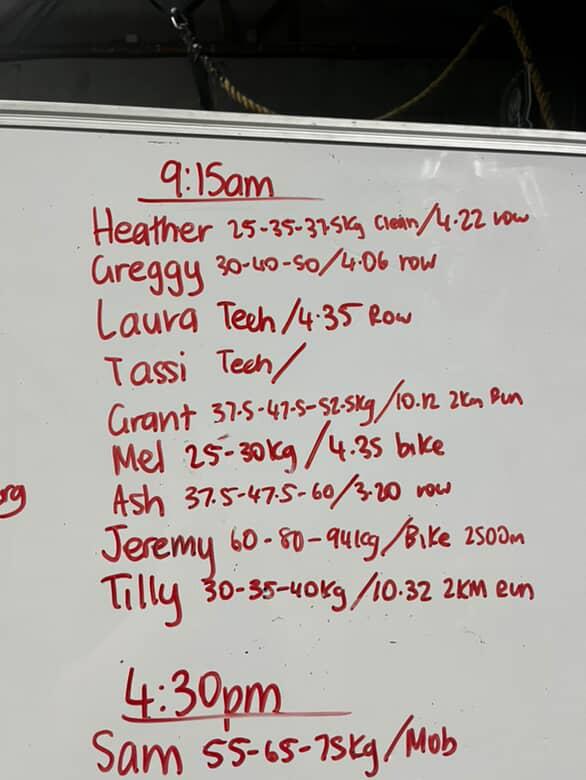 9:15am
Heather 25-35-37.5kg Clean/4.22 row
Greggy 30-40-50/4.06 row
Laura Tech/4.35 Row
Tassi Tech/
Grant 37.5-47.5-52.5kg/10.12 2km Run
Mel 25-30kg/4.35 bike
Ash 37.5-47.5-60/3.20 row
Jeremy 60-80-94kg/Bike 2500m
Tilly 30-35-40kg/10.32 2KM run
4:30pm
Sam 55-65-75kg/Mob